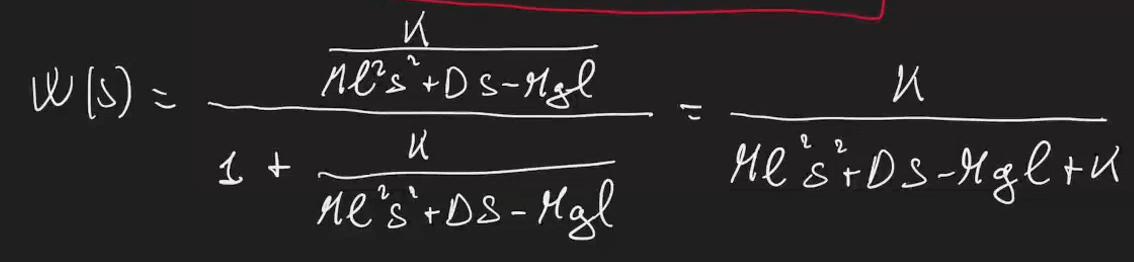 W(s) = \frac{\frac{K}{Ml^2s^2+Ds-Mgl}}{1+\frac{K}{Ml^2s^2+Ds-Mgl}} = \frac{K}{Ml^2s^2+Ds-Mgl+K}